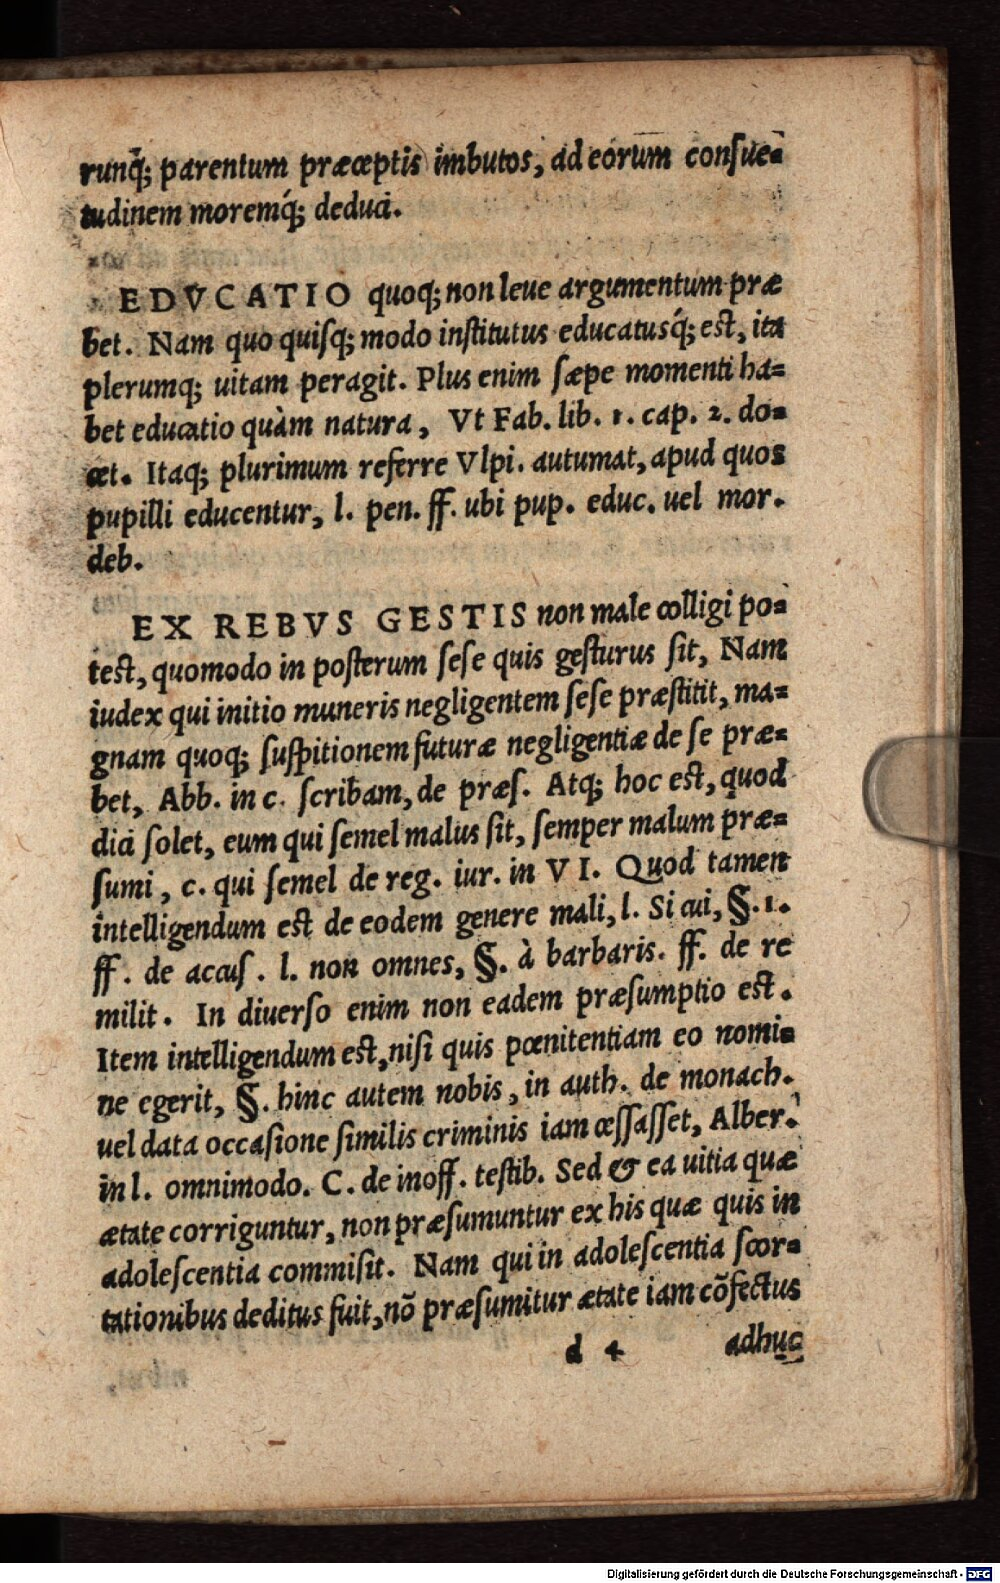 runq́; parentum præceptis imbutos, ad eorum consue-
tudinem moremq́; deduci.
EDVCATIO quoq; non leue argumentum præ
bet. Nam quo quiſq; modo inſtitutus educatusq́; eſt, ita
plerumq; uitam peragit. Plus enim ſæpe momenti ha-
bet educatio quàm natura, Vt Fab. lib. 1. cap. 2. do-
cet. Itaq; plurimum referre Vlpi. autumat, apud quos
pupilli educentur, l. pen. ff. ubi pup. educ. uel mor.
deb.
EX REBVS GESTIS non male colligi po-
teſt, quomodo in poſterum ſeſe quis geſturus ſit, Nam
iudex qui initio muneris negligentem ſeſe præſtitit, ma-
gnam quoq; ſuſpitionem futuræ negligentiæ de ſe præ-
bet, Abb. in c. ſcribam, de præſ. Atq; hoc eſt, quod
dici ſolet, eum qui ſemel malus ſit, ſemper malum præ-
ſumi, c. qui ſemel de reg. iur. in VI. Quod tamen
intelligendum eſt de eodem genere mali, l. Si cui, §. 1.
ff. de accuſ. l. non omnes, §. à barbaris. ff. de re
milit. In diuerſo enim non eadem præſumptio eſt.
Item intelligendum eſt, niſi quis pœnitentiam eo nomi-
ne egerit, §. hinc autem nobis, in auth. de monach.
uel data occaſione ſimilis criminis iam ceſſaſſet, Alber.
in l. omnimodo. C. de inoff. teſtib. Sed & ea uitia quæ
ætate corriguntur, non præſumuntur ex his quæ quis in
adoleſcentia commiſit. Nam qui in adoleſcentia ſcor-
tationibus deditus fuit, nō præſumitur ætate iam cōfectus
d 4 adhuc
Digitalisierung gefördert durch die Deutsche Forschungsgemeinschaft - DFG